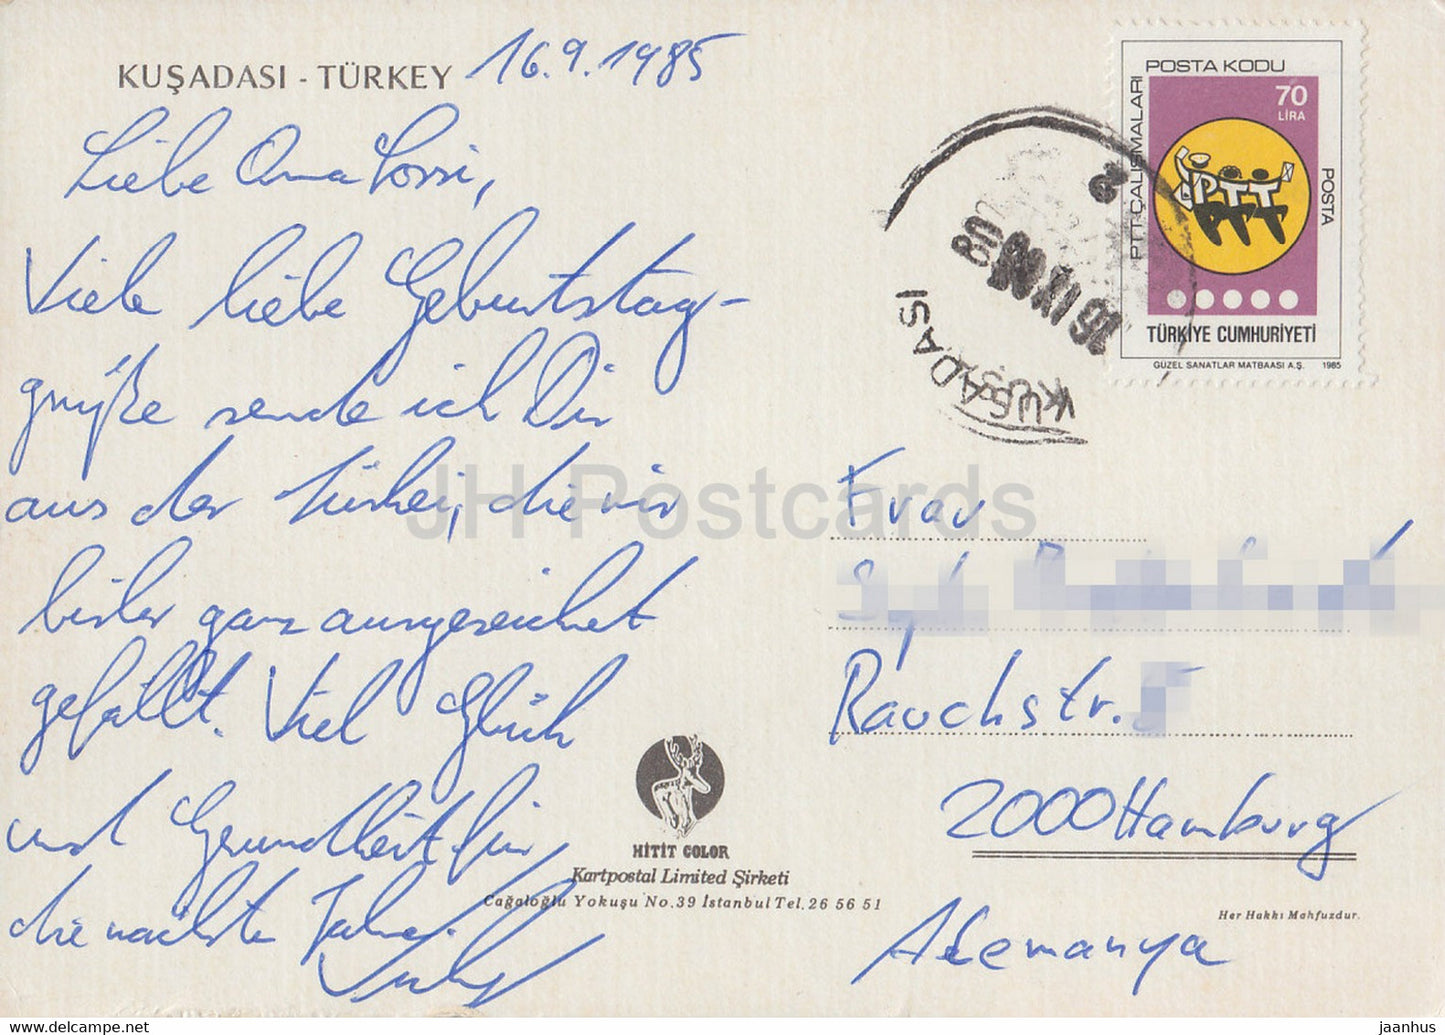 KUŞADASI - TÜRKEY 16.9.1985
Liebe Oma Lossi,
Viele liebe Geburtstag-
grüße sende ich Dir
aus der Türkei, die wir
bisher ganz ausgezeichnet
gefällt. Viel Glück
und Gesundheit für
die nächsten Jahre.
POSTA KODU
PTT ÇALIŞMALARI
70
LİRA
POSTA
PTT
TÜRKİYE CUMHURİYETİ
GÜZEL SANATLAR MATBAASI A.Ş. 1985
KUŞADASI
JH Postcards
Frau
Rauchstr.
2000 Hamburg
Alemanya
HITIT COLOR
Kartpostal Limited Şirketi
Cağaloğlu Yokuşu No.39 İstanbul Tel. 26 56 51
Her Hakkı Mahfuzdur.
www.delcampe.net
jaanhus